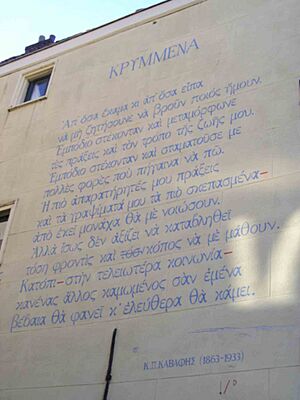 ΚΡΥΜΜΕΝΑ
Ἀπ' ὅσα ἔκαμα κι ἀπ' ὅσα εἶπα
νὰ μὴ ζητήσουνε νὰ βροῦν ποιὸς ἤμουν.
Ἐμπόδιο στέκονταν καὶ μεταμόρφωνε
τὲς πράξεις καὶ τὸν τρόπο τῆς ζωῆς μου.
Ἐμπόδιο στέκονταν καὶ σταματοῦσέ με
πολλὲς φορὲς ποὺ πήγαινα νὰ πῶ.
Ἡ πιὸ ἀπαρατήρητές μου πράξεις
καὶ τὰ γραψίματά μου τὰ πιὸ σκεπασμένα—
ἀπὸ ἐκεῖ μονάχα θὰ μὲ νοιώσουν.
Ἀλλὰ ἴσως δὲν ἀξίζει νὰ καταβληθεῖ
τόση φροντὶς καὶ τόσος κόπος νὰ μὲ μάθουν.
Κατόπι—στὴν τελειωτέρα κοινωνία—
κανένας ἄλλος καμωμένος σὰν ἐμένα
βέβαια θὰ φανεῖ κ' ἐλεύθερα θὰ κάμει.
Κ.Π. ΚΑΒΑΦΗΣ (1863-1933)